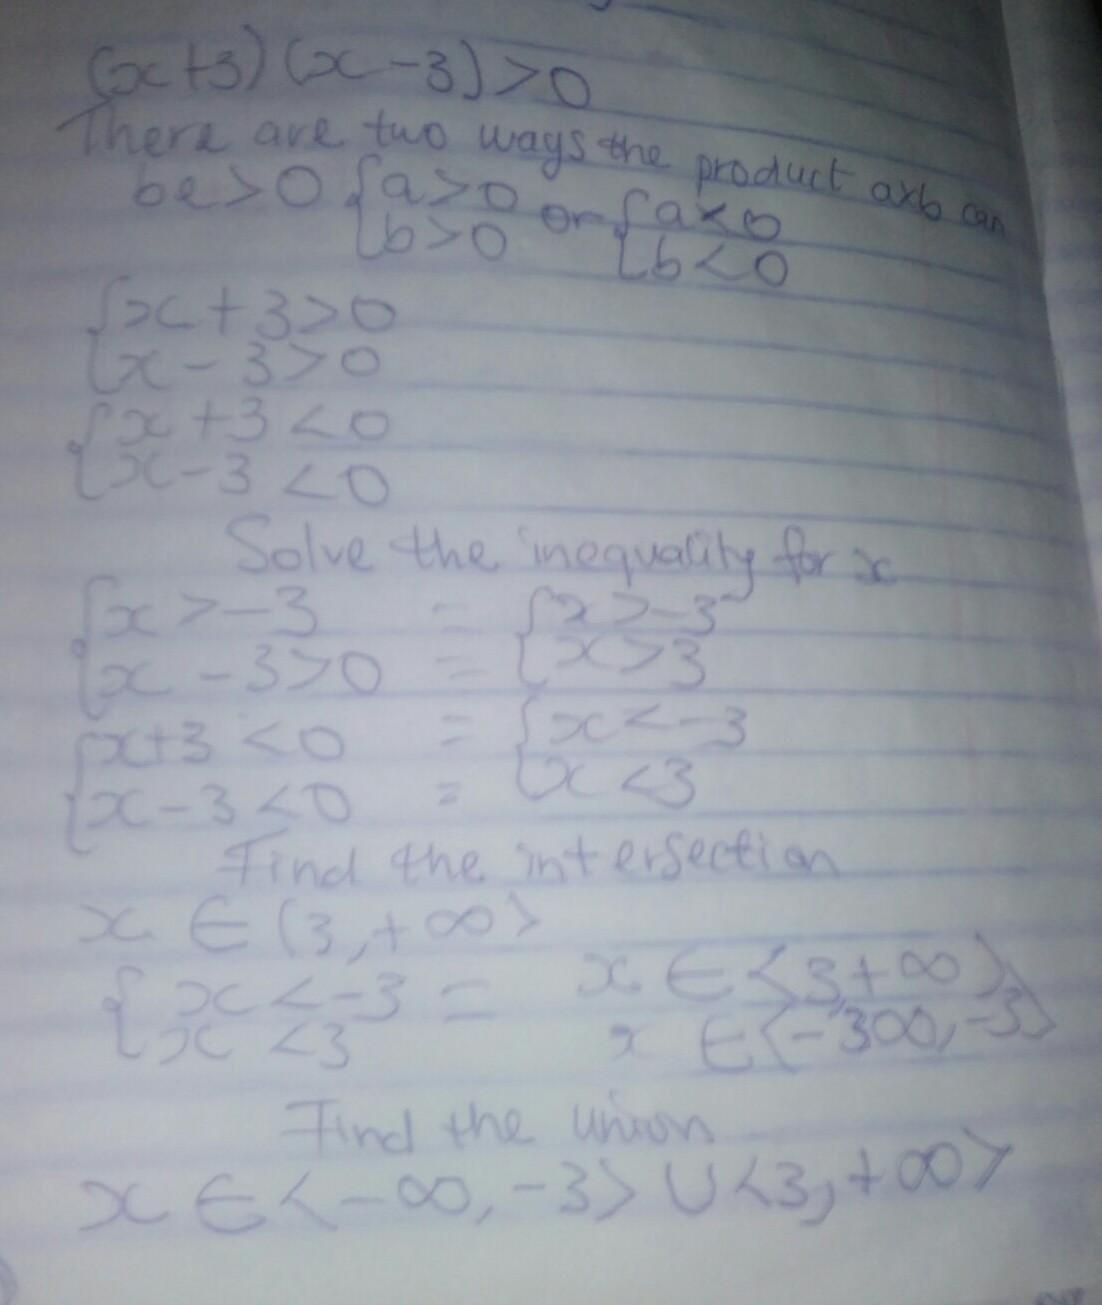 (x+3)(x-3)>0
There are two ways the product axb can
be>0 {a>0 or {a<0
b>0 b<0
{x+3>0
x-3>0
{x+3<0
x-3<0
Solve the inequality for x
{x>-3 = {x>-3
x-3>0 = x>3
{x+3<0 = {x<-3
x-3<0 = x<3
Find the intersection
x∈(3,+∞>
{x<-3 = x∈<3,+∞>
x<3 x∈<-300,-3>
Find the union
x∈<-∞,-3>∪<3,+∞>